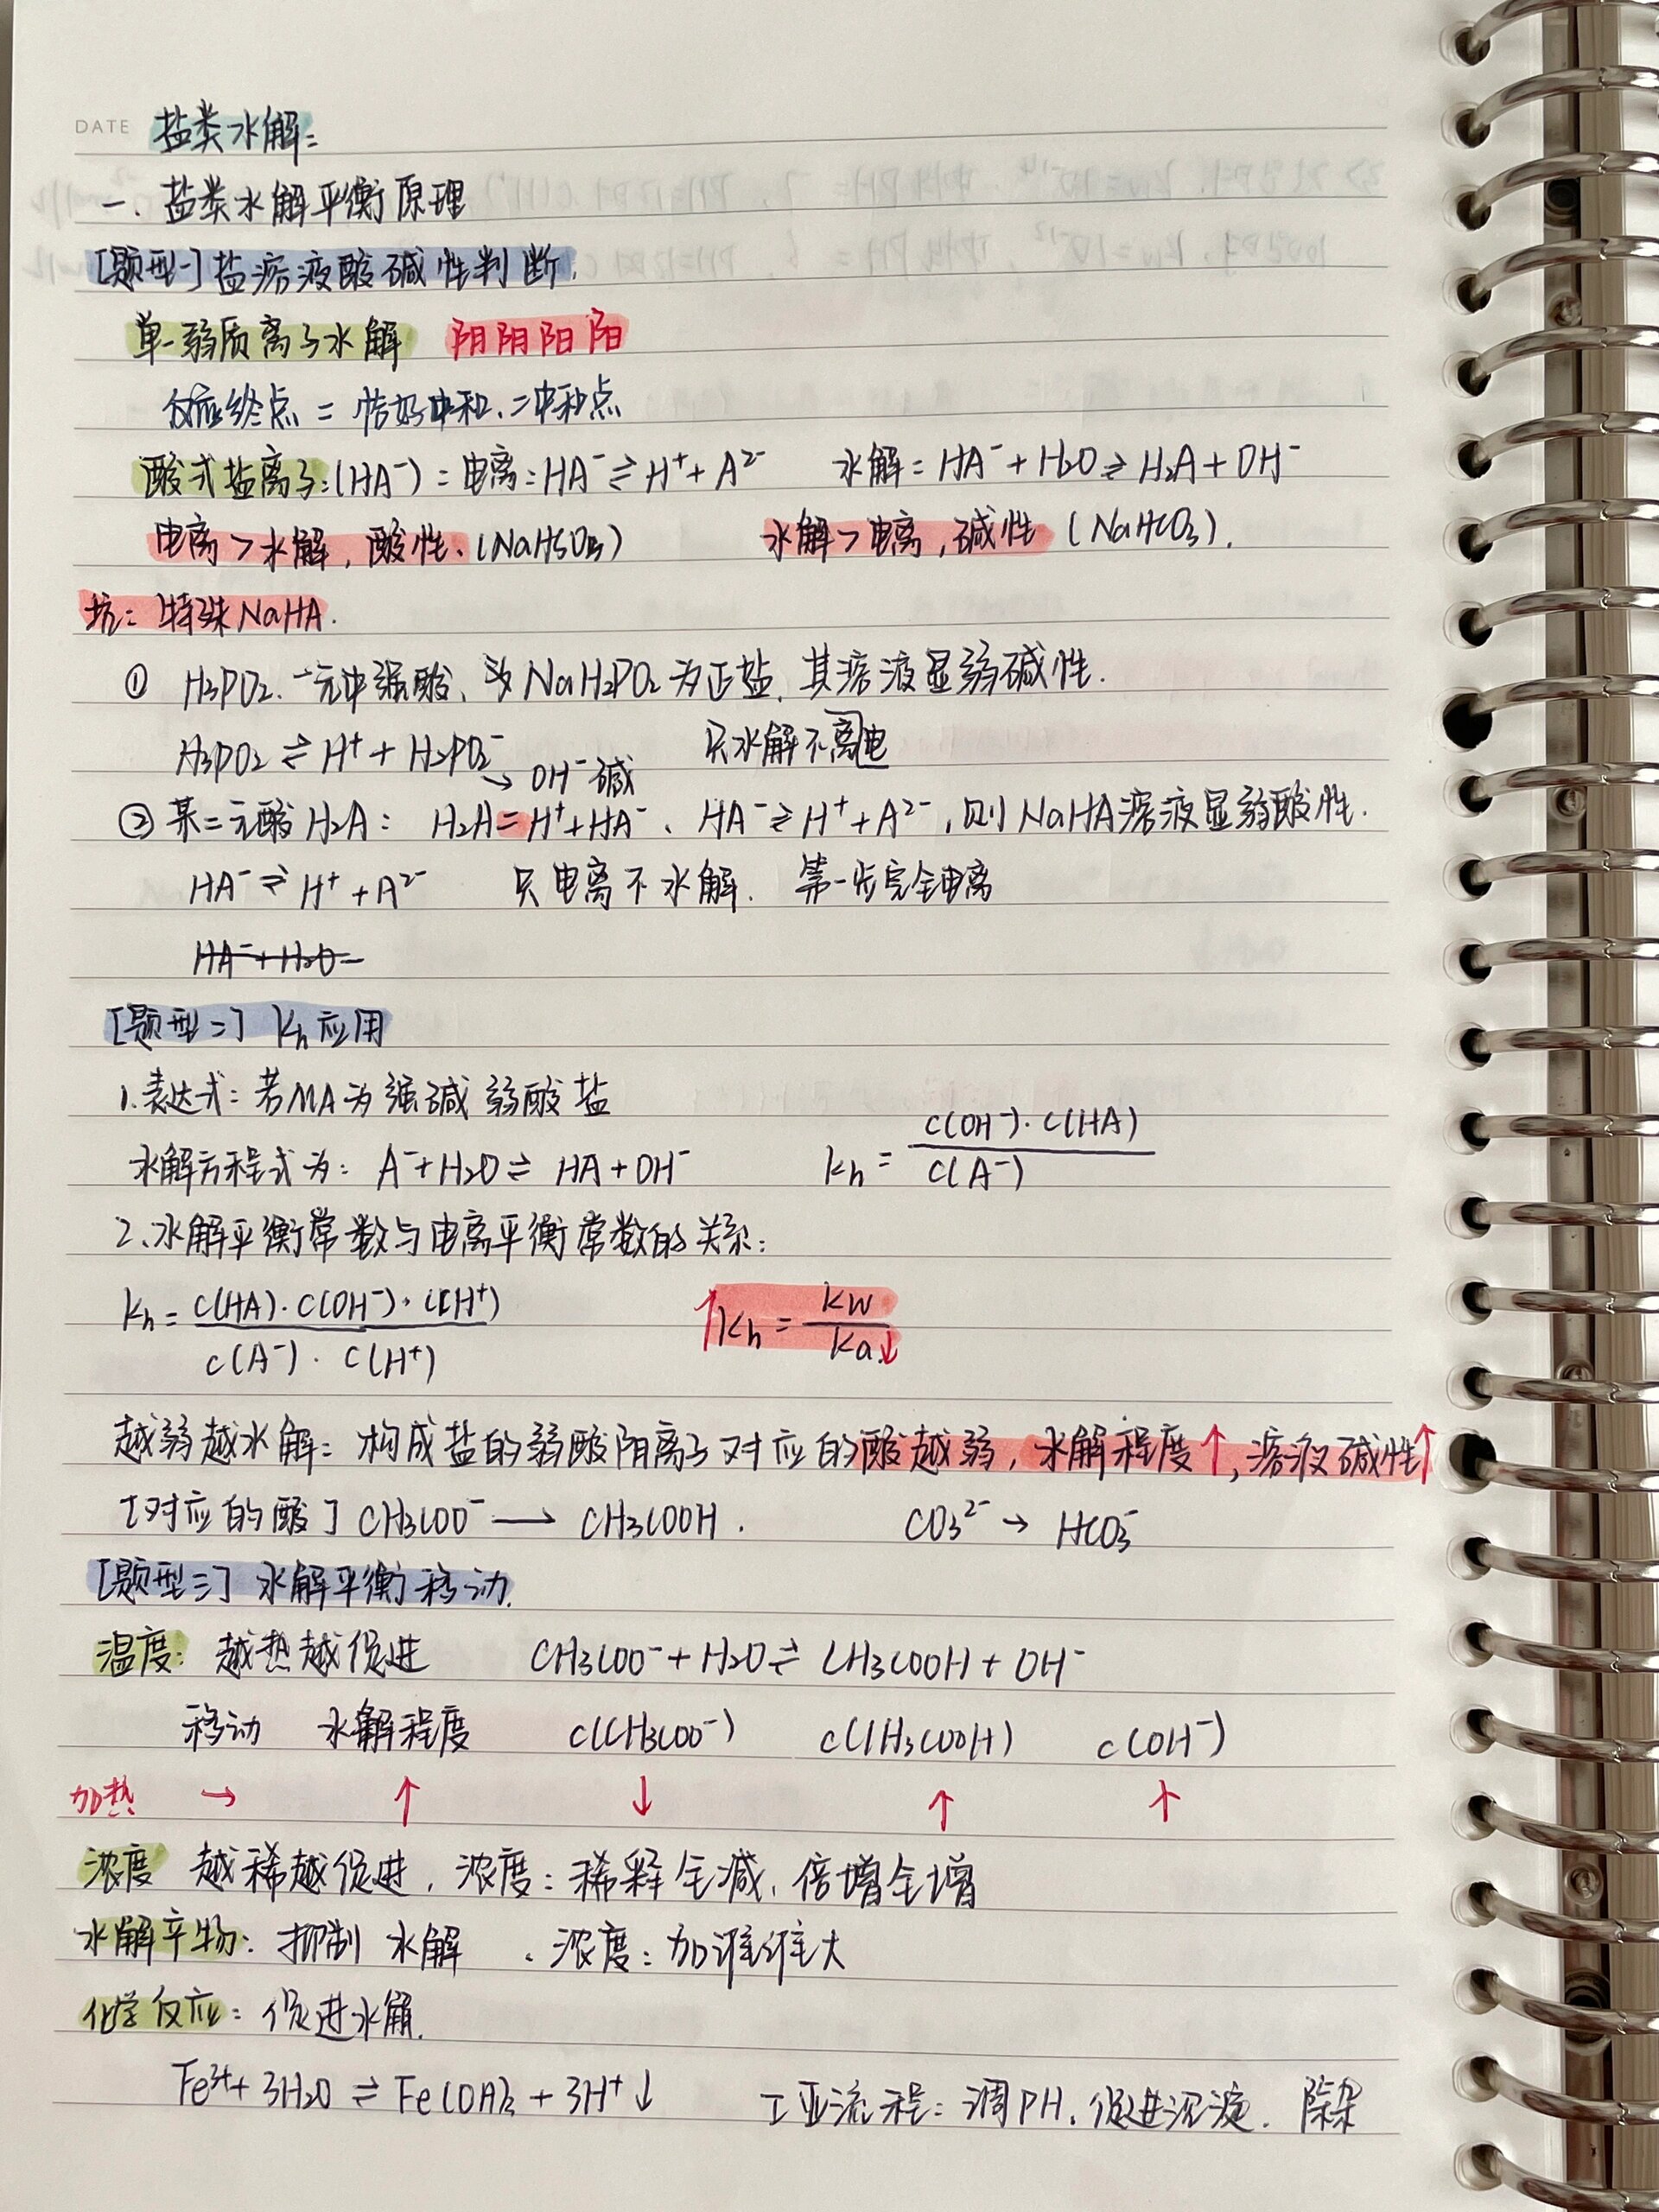 DATE 盐类水解：
一、盐类水解平衡原理
[题型一] 盐溶液酸碱性判断.
单一弱质离子水解 阴阴阳阳
反应终点 = 恰好中和、= 中和点
酸式盐离子：(HA⁻)：电离：HA⁻ ⇌ H⁺ + A²⁻ 水解：HA⁻ + H₂O ⇌ H₂A + OH⁻
电离 > 水解，酸性、(NaHSO₃) 水解 > 电离，碱性 (NaHCO₃).
坑：特殊NaHA.
① H₃PO₂.一元中强酸、 NaH₂PO₂为正盐.其溶液显弱碱性.
H₃PO₂ ⇌ H⁺ + H₂PO₂⁻ 只水解不离电
→ OH⁻碱
② 某二元酸H₂A： H₂A = H⁺+HA⁻、HA⁻ ⇌ H⁺ + A²⁻，则NaHA溶液显弱酸性.
HA⁻ ⇌ H⁺ + A²⁻ 只电离不水解. 第一步完全电离
HA⁻ + H₂O =
[题型二] Kh应用
1.表达式：若MA为强碱弱酸盐
水解方程式为：A⁻+H₂O ⇌ HA + OH⁻ Kh = c(OH⁻)·c(HA) / c(A⁻)
2.水解平衡常数与电离平衡常数的关系：
Kh = c(HA)·c(OH⁻)·c(H⁺) / c(A⁻)·c(H⁺) ↑Kh = Kw / Ka↓
越弱越水解：构成盐的弱酸阴离子对应的酸越弱，水解程度↑，溶液碱性↑
[对应的酸] CH₃COO⁻ → CH₃COOH. CO₃²⁻ → HCO₃⁻
[题型三] 水解平衡移动.
温度：越热越促进 CH₃COO⁻ + H₂O ⇌ CH₃COOH + OH⁻
移动 水解程度 c(CH₃COO⁻) c(CH₃COOH) c(OH⁻)
加热 → ↑ ↓ ↑ ↑
浓度 越稀越促进，浓度：稀释全减、倍增全增
水解产物：抑制水解、浓度：加谁谁大
化学反应：促进水解.
Fe³⁺ + 3H₂O ⇌ Fe(OH)₃ + 3H⁺↓ 工业流程：调PH，促进沉淀. 除杂